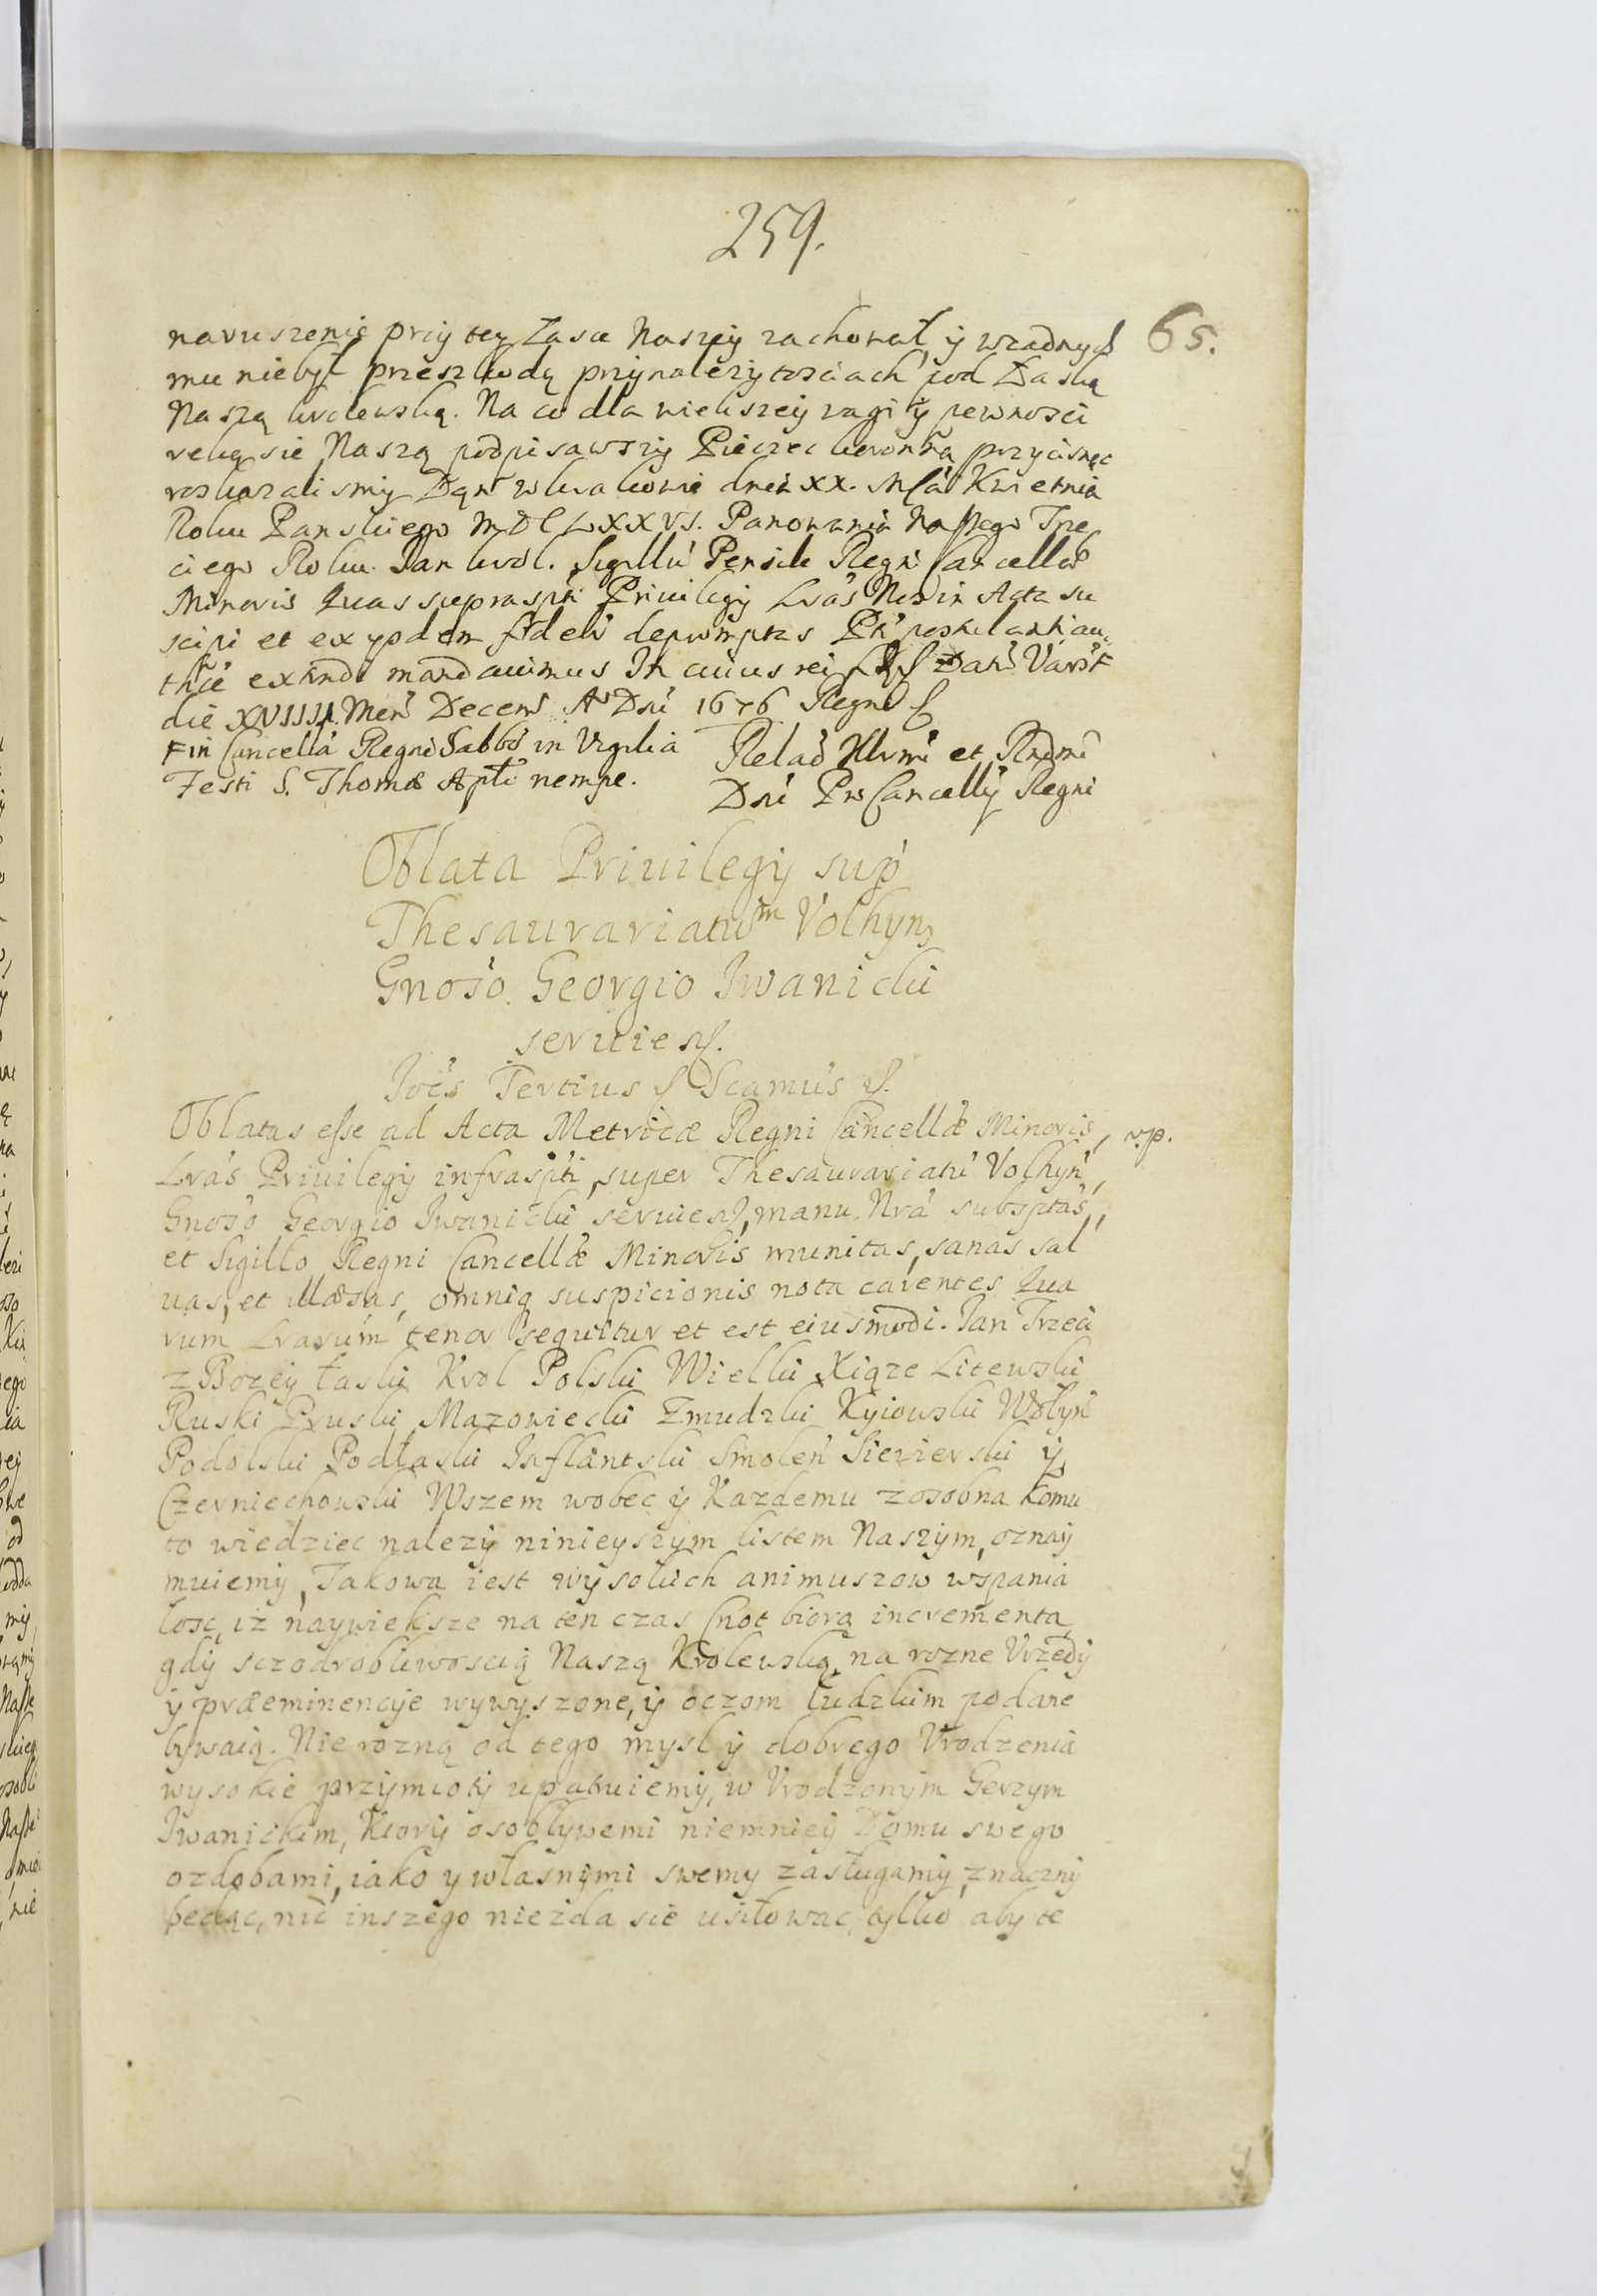 259.
65.
naruszenie przy tey Łasce Naszey zachował y wzadnych
mu niebył przeszkodą przynalezytosciach pod Łaską
Naszą krolewską. Na co dla wiekszey wagi y pewnosci
ręką sie Naszą podpisawszy Pieczec koronną przycisnąc
roskazalismy Dąn w Krakowie dnia XX. Mca Kwietnia
Roku Panskiego MDCLXXVI. Panowania Naszego Trze
ciego Roku. Jan krol. Sigillu Pensile Regni Cancellae
Minoris Quas suprasptti Privilegij Lras Nos in Acta su
scipi et ex ijsdem fideli depromptas Pti postulanti au
thce extradi mandavimus In cuius rei Dat Vars
die XVIIII Mens Decem Ao Dni 1676 Regni
F in Cancella Regni Sabbo in Vigilia
Festi S. Thomae Apti nempe.
Relao Illrmi et Rndmi
Dni ProCancellij Regni
Oblata Privilegij sup
Thesaurariatum Volhyn
Gnoso Georgio Iwanicki
servien.
Joes Tertius Scamus
Oblatas esse ad Acta Metricae Regni Cancellae Minoris, v.p.
Lras Privilegij infraspti, super Thesaurariatu Volhyn,
Gnoso Georgio Iwanicki servien, manu Nra subsptas,
et Sigillo Regni Cancellae Minoris munitas, sanas sal
vas, et illaesas, omniq suspicionis nota carentes Qua
rum Lrarum tenor sequitur et est eiusmodi. Jan Trzeci
z Bozey łaski Krol Polski Wielki Xiąze Litewski
Ruski Pruski Mazowiecki Zmudzki Kyiowski Wołyn
Podolski Podłaski Inflantski Smolen Siewierski y
Czerniechowski Wszem wobec y Kazdemu zosobna komu
to wiedziec nalezy ninieyszym listem Naszym, oznay
muiemy, Takowa iest wysokich animuszow wspania
łosc, iz naywieksze na ten czas Cnot biorą incrementa
gdy sczodrobliwoscią Naszą Krolewską, na rozne Urzędy
y praeeminencye wywyszone, y oczom ludzkim podane
bywaią. Nie rozną od tego mysl y dobrego Urodzenia
wysokie przymioty upatruiemy, w Urodzonym Gerzym
Iwanickim, Ktory osobływemi niemniey Domu swego
ozdobami, iako y własnymi swemy zasługamy, znaczny
będąc, nic inszego niezda sie usiłowac, tylko aby te